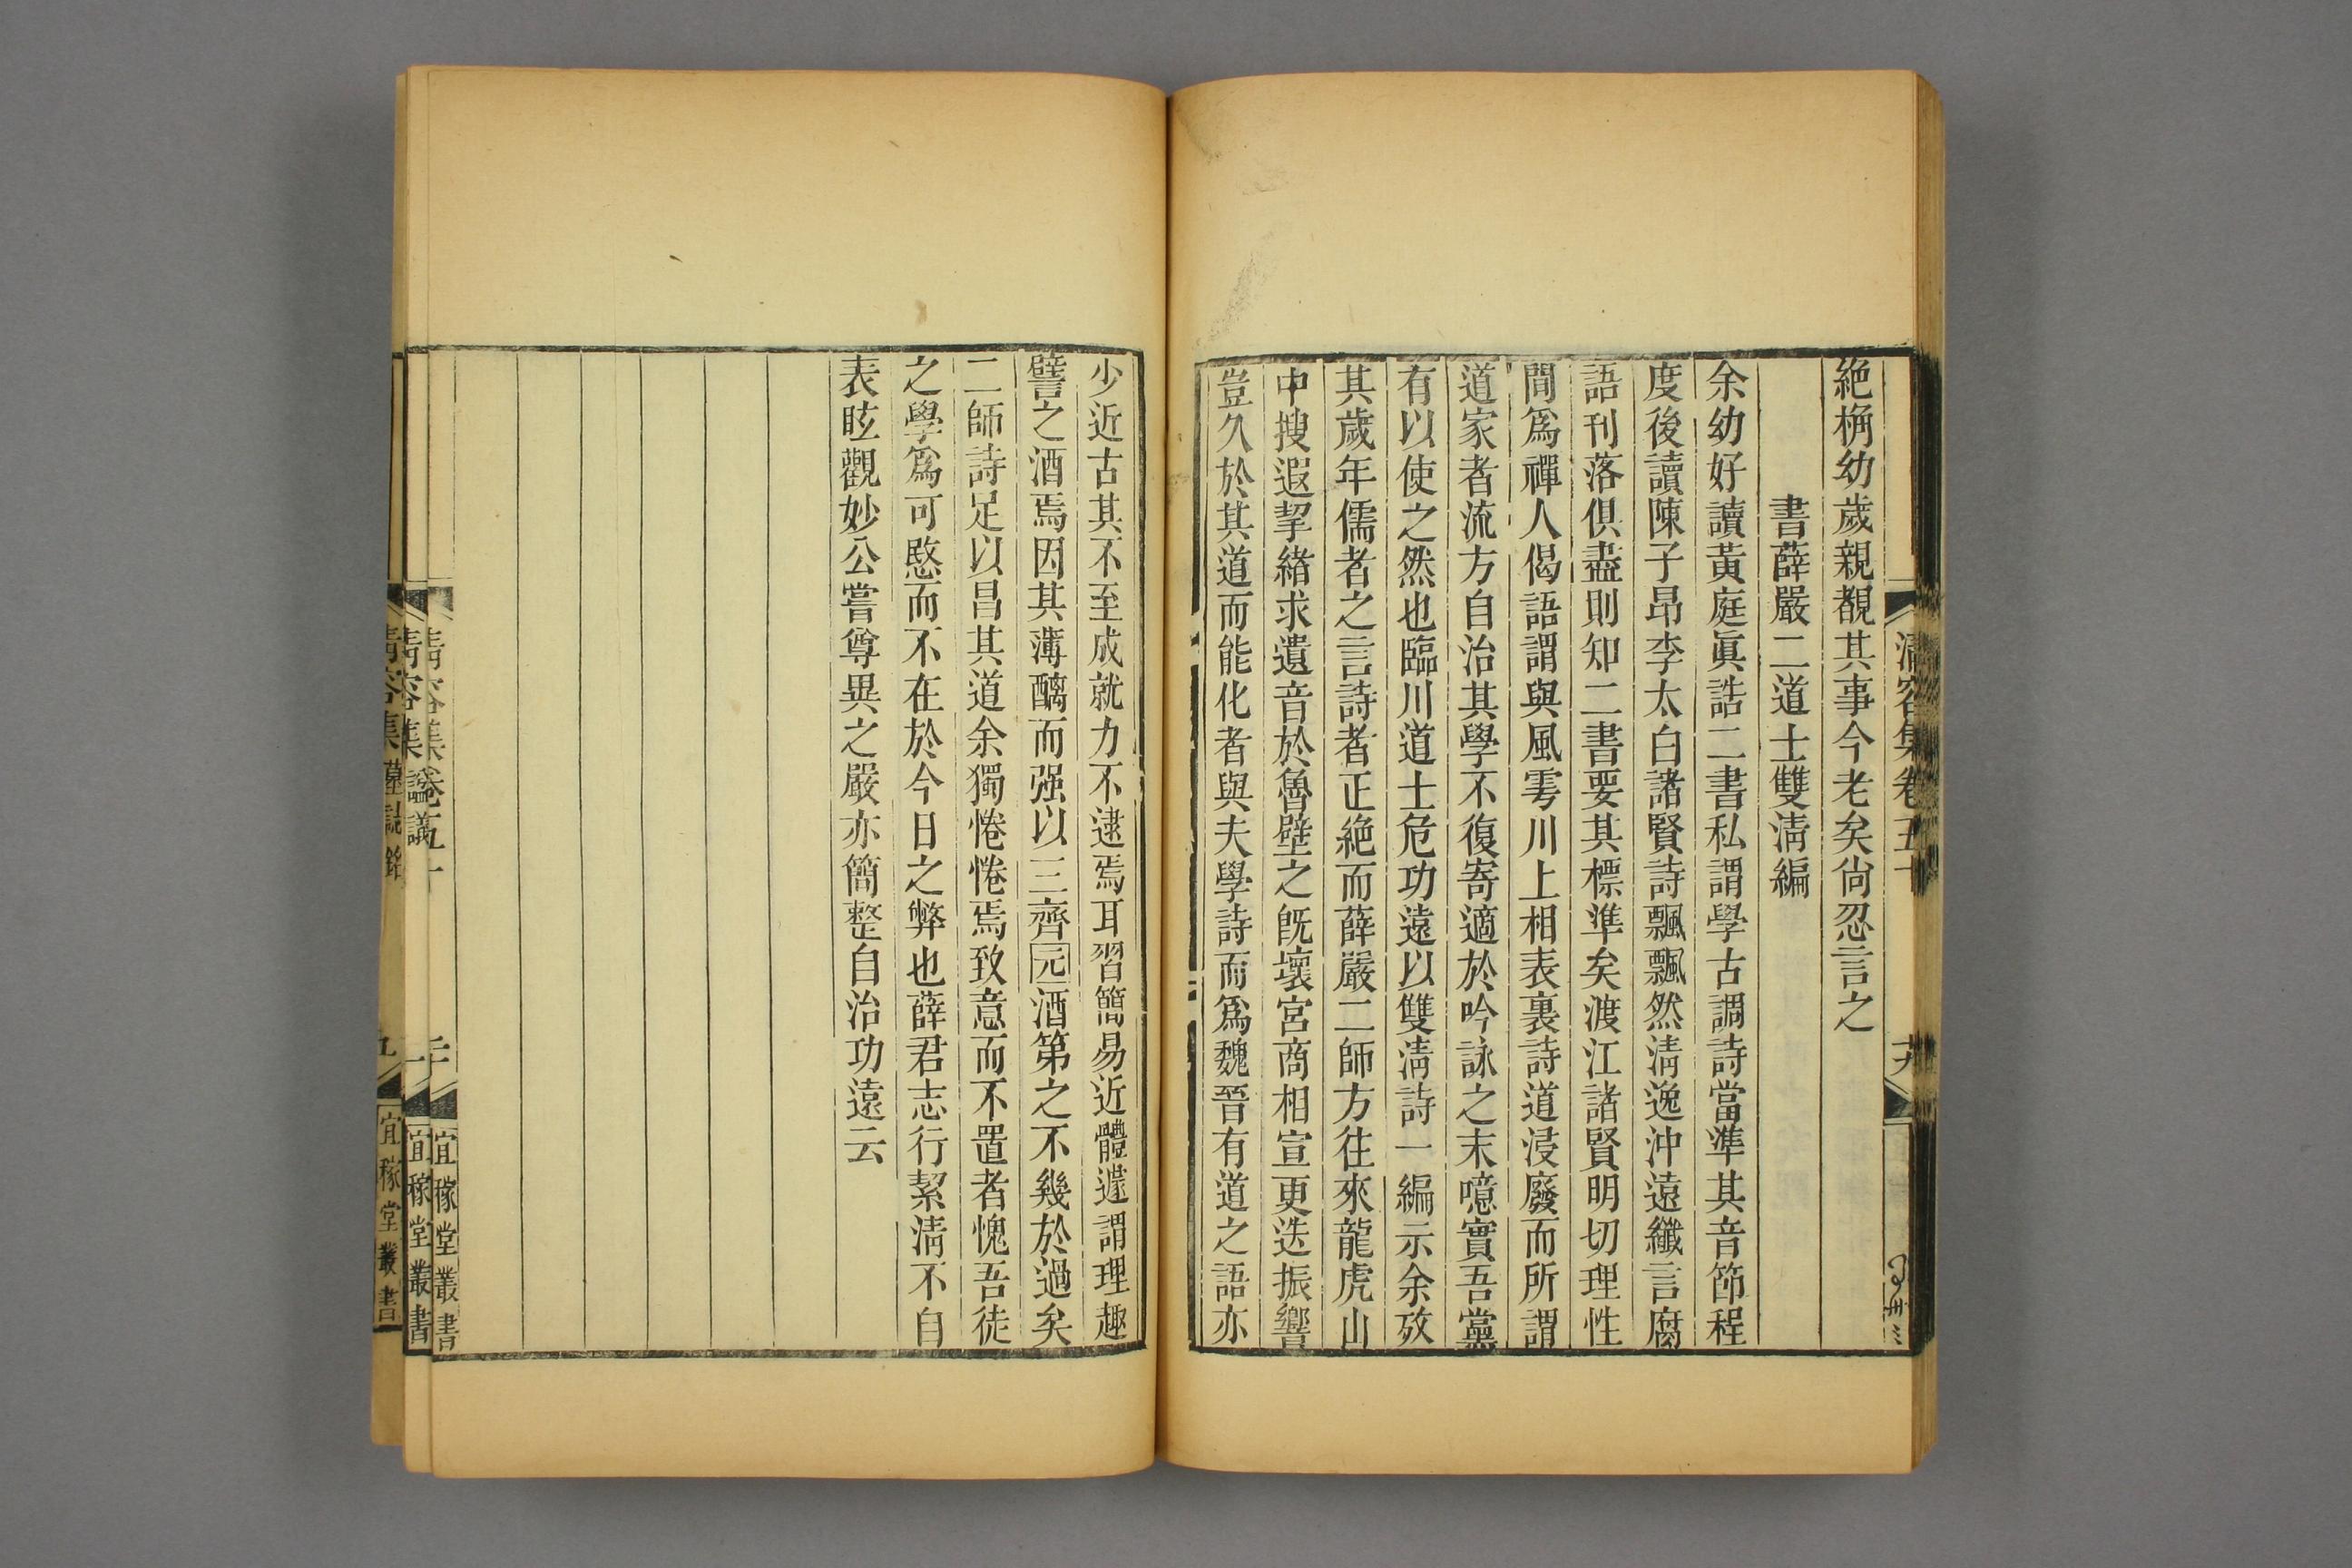 絶桷幼歲親覩其事今老矣尙忍言之
書薛嚴二道士雙淸編
余幼好讀黃庭眞誥二書私謂學古調詩當準其音節程
度後讀陳子昂李太白諸賢詩飄飄然淸逸沖遠纖言腐
語刊落俱盡則知二書要其標準矣渡江諸賢明切理性
間爲禪人偈語謂與風雩川上相表裏詩道浸廢而所謂
道家者流方自治其學不復寄適於吟詠之末噫實吾黨
有以使之然也臨川道士危功遠以雙淸詩一編示余攷
其歲年儒者之言詩者正絶而薛嚴二師方往來龍虎山
中搜遐挈緒求遺音於魯壁之旣壞宮商相宣更迭振響
豈久於其道而能化者與夫學詩而爲魏晉有道之語亦
少近古其不至成就力不逮焉耳習簡易近體遽謂理趣
譬之酒焉因其薄醨而强以三齊元酒第之不幾於過矣
二師詩足以昌其道余獨惓惓焉致意而不置者愧吾徒
之學爲可愍而不在於今日之弊也薛君志行絜淸不自
表眩觀妙公嘗尊異之嚴亦簡整自治功遠云
淸容集卷五十
宜稼堂叢書
宜稼堂叢書
宜稼堂叢書